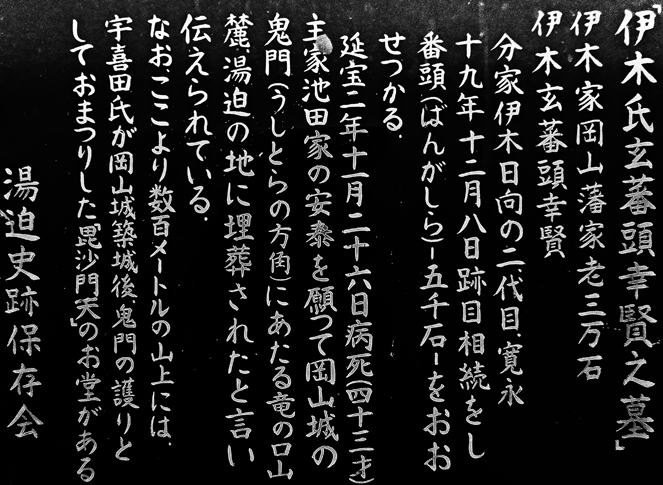 「伊木氏玄蕃頭幸賢之墓」
伊木家岡山藩家老三万石
伊木玄蕃頭幸賢
分家伊木日向の二代目、寛永
十九年十二月八日跡目相続をし
番頭(ばんがしら)ー五千石ーをおお
せつかる。
延宝二年十一月二十六日病死(四十三才)
主家池田家の安泰を願って岡山城の
鬼門(うしとらの方角)にあたる竜の口山
麓、湯迫の地に埋葬されたと言い
伝えられている。
なお、ここより数百メートルの山上には、
宇喜田氏が岡山城築城後鬼門の護りと
しておまつりした「毘沙門天」のお堂がある
湯迫史跡保存会